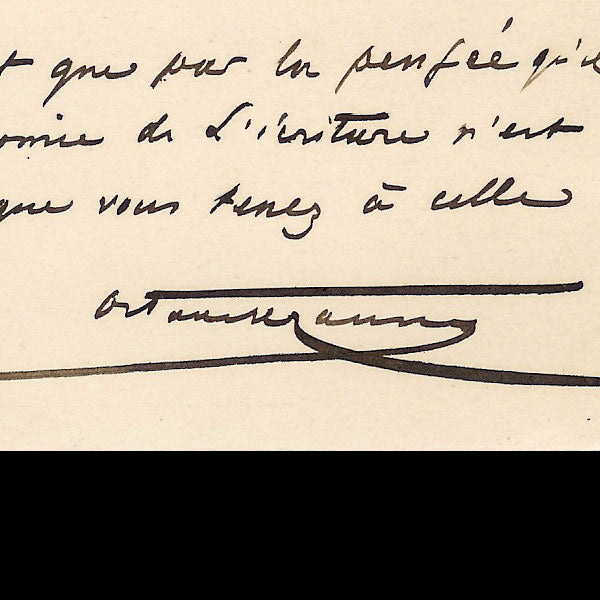 t que par la pensée qu'il
omie de l'écriture n'est
que vous tenez à celle
Octave Uzanne